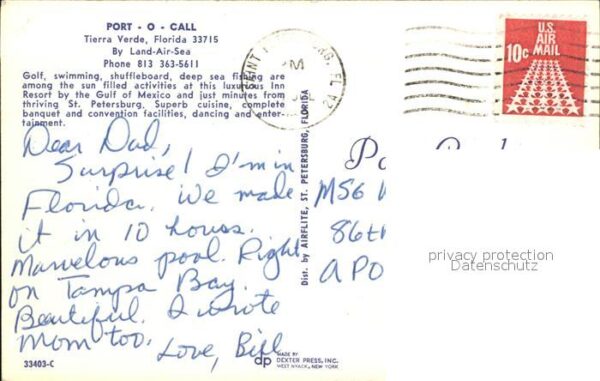 PORT - O - CALL
Tierra Verde, Florida 33715
By Land-Air-Sea
Phone 813 363-5611
Golf, swimming, shuffleboard, deep sea fishing are
among the sun filled activities at this luxurious Inn
Resort by the Gulf of Mexico and just minutes from
thriving St. Petersburg. Superb cuisine, complete
banquet and convention facilities, dancing and enter-
tainment.
Dear Dad,
Surprise! I'm in
Florida. We made
it in 10 hours.
Marvelous pool. Right
on Tampa Bay.
Beautiful. I wrote
Mom too.
Love, Bill
33403-C
Dist. by AIRFLITE, ST. PETERSBURG, FLORIDA
dp
MADE BY
DEXTER PRESS, INC.
WEST NYACK, NEW YORK
SAINT
FL
PM
U.S.
AIR
MAIL
10c
MSG
86th
APO
privacy protection
Datenschutz